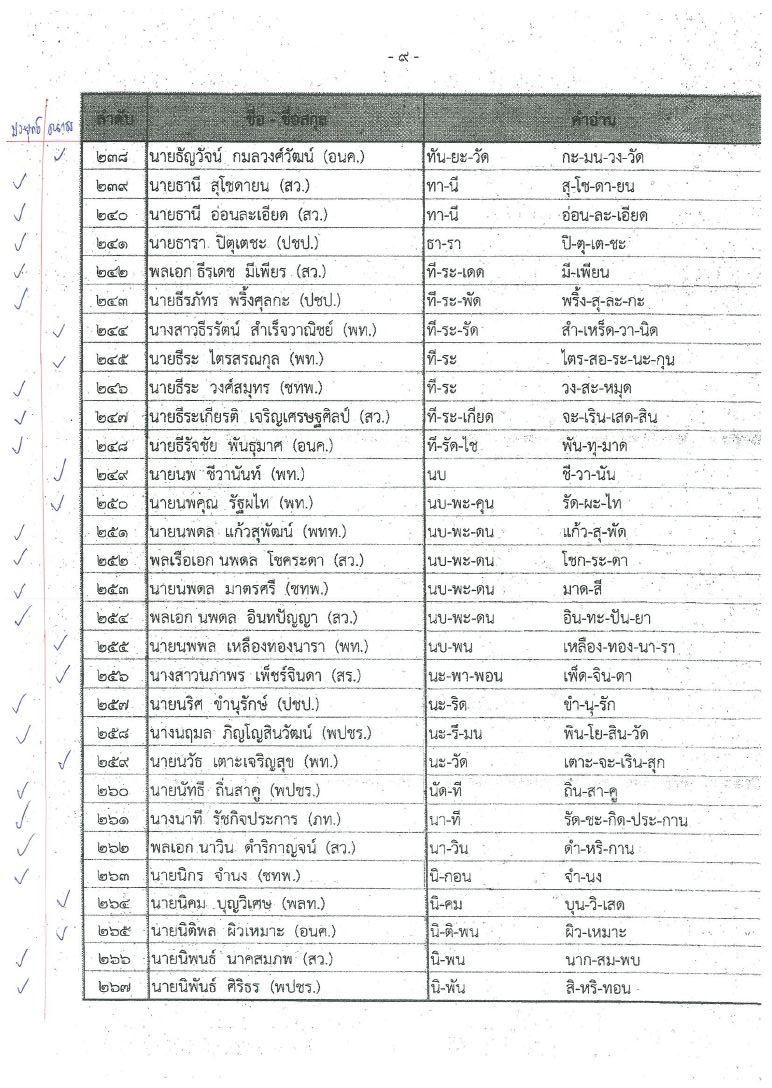 - ๙ -
ประยุทธ์ ธนาธร
ลำดับ ชื่อ - ชื่อสกุล คำอ่าน
๒๓๘ นายธัญวัจน์ กมลวงศ์วัฒน์ (อนค.) ทัน-ยะ-วัด กะ-มน-วง-วัด
๒๓๙ นายธานี สุโชดายน (สว.) ทา-นี สุ-โช-ดา-ยน
๒๔๐ นายธานี อ่อนละเอียด (สว.) ทา-นี อ่อน-ละ-เอียด
๒๔๑ นายธารา ปิตุเตชะ (ปชป.) ธา-รา ปิ-ตุ-เต-ชะ
๒๔๒ พลเอก ธีรเดช มีเพียร (สว.) ที-ระ-เดด มี-เพียน
๒๔๓ นายธีรภัทร พริ้งศุลกะ (ปชป.) ที-ระ-พัด พริ้ง-สุ-ละ-กะ
๒๔๔ นางสาวธีรรัตน์ สำเร็จวาณิชย์ (พท.) ที-ระ-รัด สำ-เหร็ด-วา-นิด
๒๔๕ นายธีระ ไตรสรณกุล (พท.) ที-ระ ไตร-สอ-ระ-นะ-กุน
๒๔๖ นายธีระ วงศ์สมุทร (ชทพ.) ที-ระ วง-สะ-หมุด
๒๔๗ นายธีระเกียรติ เจริญเศรษฐศิลป์ (สว.) ที-ระ-เกียด จะ-เริน-เสด-สิน
๒๔๘ นายธีรัจชัย พันธุมาศ (อนค.) ที-รัด-ไช พัน-ทุ-มาด
๒๔๙ นายนพ ชีวานันท์ (พท.) นบ ชี-วา-นัน
๒๕๐ นายนพคุณ รัฐผไท (พท.) นบ-พะ-คุน รัด-ผะ-ไท
๒๕๑ นายนพดล แก้วสุพัฒน์ (พทท.) นบ-พะ-ดน แก้ว-สุ-พัด
๒๕๒ พลเรือเอก นพดล โชคระดา (สว.) นบ-พะ-ดน โชก-ระ-ดา
๒๕๓ นายนพดล มาตรศรี (ชทพ.) นบ-พะ-ดน มาด-สี
๒๕๔ พลเอก นพดล อินทปัญญา (สว.) นบ-พะ-ดน อิน-ทะ-ปัน-ยา
๒๕๕ นายนพพล เหลืองทองนารา (พท.) นบ-พน เหลือง-ทอง-นา-รา
๒๕๖ นางสาวนภาพร เพ็ชร์จินดา (สร.) นะ-พา-พอน เพ็ด-จิน-ดา
๒๕๗ นายนริศ ขำนุรักษ์ (ปชป.) นะ-ริด ขำ-นุ-รัก
๒๕๘ นางนฤมล ภิญโญสินวัฒน์ (พปชร.) นะ-รึ-มน พิน-โย-สิน-วัด
๒๕๙ นายนวัธ เตาะเจริญสุข (พท.) นะ-วัด เตาะ-จะ-เริน-สุก
๒๖๐ นายนัทธี ถิ่นสาคู (พปชร.) นัด-ที ถิ่น-สา-คู
๒๖๑ นางนาที รัชกิจประการ (ภท.) นา-ที รัด-ชะ-กิด-ประ-กาน
๒๖๒ พลเอก นาวิน ดำริกาญจน์ (สว.) นา-วิน ดำ-หริ-กาน
๒๖๓ นายนิกร จำนง (ชทพ.) นิ-กอน จำ-นง
๒๖๔ นายนิคม บุญวิเศษ (พลท.) นิ-คม บุน-วิ-เสด
๒๖๕ นายนิติพล ผิวเหมาะ (อนค.) นิ-ติ-พน ผิว-เหมาะ
๒๖๖ นายนิพนธ์ นาคสมภพ (สว.) นิ-พน นาก-สม-พบ
๒๖๗ นายนิพันธ์ ศิริธร (พปชร.) นิ-พัน สิ-หริ-ทอน